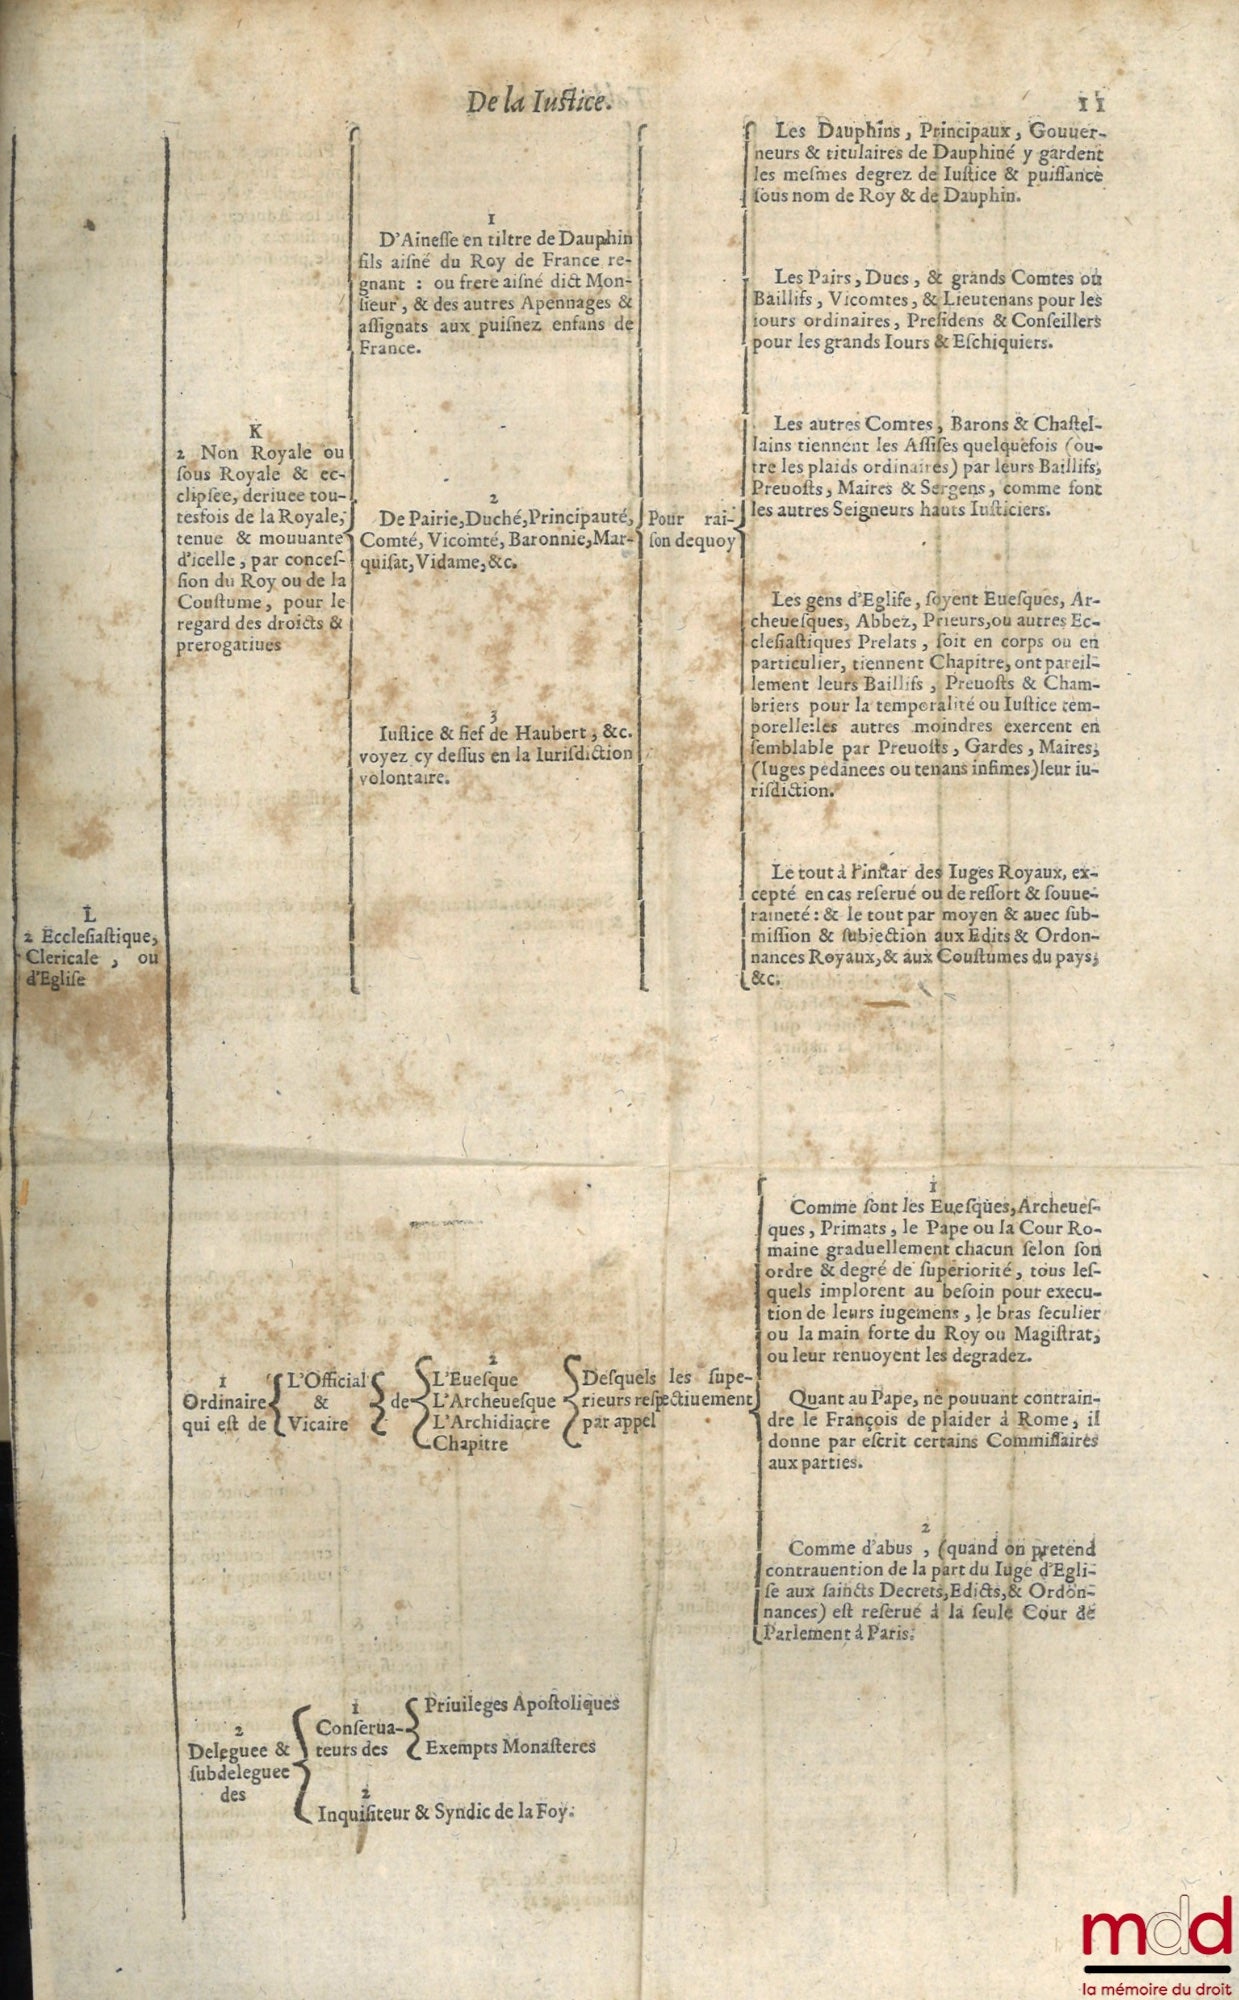 De la Iuſtice.
11
K
2 Non Royale ou
ſous Royale & ec-
clipſee, deriuee tou-
tesfois de la Royale,
tenue & mouuante
d'icelle, par conceſ-
ſion du Roy ou de la
Couſtume, pour le
regard des droicts &
prerogatiues
1
D'Aineſſe en tiltre de Dauphin
fils aiſné du Roy de France re-
gnant : ou frere aiſné dict Mon-
ſieur, & des autres Apennages &
aſſignats aux puiſnez enfans de
France.
2
De Pairie, Duché, Principauté,
Comté, Vicomté, Baronnie, Mar-
quiſat, Vidame, &c.
3
Iuſtice & fief de Haubert, &c.
voyez cy deſſus en la Iuriſdiction
volontaire.
Pour rai-
ſon dequoy
Les Dauphins, Principaux, Gouuer-
neurs & titulaires de Dauphiné y gardent
les meſmes degrez de Iuſtice & puiſſance
ſous nom de Roy & de Dauphin.
Les Pairs, Ducs, & grands Comtes où
Baillifs, Vicomtes, & Lieutenans pour les
iours ordinaires, Preſidens & Conſeillers
pour les grands Iours & Eſchiquiers.
Les autres Comtes, Barons & Chaſtel-
lains tiennent les Aſſiſes quelquefois (ou-
tre les plaids ordinaires) par leurs Baillifs,
Preuoſts, Maires & Sergens, comme font
les autres Seigneurs hauts Iuſticiers.
Les gens d'Egliſe, ſoyent Eueſques, Ar-
cheueſques, Abbez, Prieurs, ou autres Ec-
cleſiaſtiques Prelats, ſoit en corps ou en
particulier, tiennent Chapitre, ont pareil-
lement leurs Baillifs, Preuoſts & Cham-
briers pour la temporalité ou Iuſtice tem-
porelle: les autres moindres exercent en
ſemblable par Preuoſts, Gardes, Maires,
(Iuges pedanees ou tenans infimes) leur iu-
riſdiction.
Le tout à l'inſtar des Iuges Royaux, ex-
cepté en cas reſerué ou de reſſort & ſouue-
raineté : & le tout par moyen & auec ſub-
miſſion & ſubiection aux Edits & Ordon-
nances Royaux, & aux Couſtumes du pays,
&c.
L
2 Eccleſiaſtique,
Clericale, ou
d'Egliſe
1
Ordinaire
qui eſt de
L'Official
&
Vicaire
de
2
L'Eueſque
L'Archeueſque
L'Archidiacre
Chapitre
Deſquels les ſupe-
rieurs reſpectiuement
par appel
1
Comme ſont les Eueſques, Archeueſ-
ques, Primats, le Pape ou la Cour Ro-
maine graduellement chacun ſelon ſon
ordre & degré de ſuperiorité, tous leſ-
quels implorent au beſoin pour execu-
tion de leurs iugemens, le bras ſeculier
ou la main forte du Roy ou Magiſtrat,
ou leur renuoyent les degradez.
Quant au Pape, ne pouuant contrain-
dre le François de plaider à Rome, il
donne par eſcrit certains Commiſſaires
aux parties.
2
Comme d'abus, (quand on pretend
contrauention de la part du Iuge d'Egli-
ſe aux ſaincts Decrets, Edicts, & Ordon-
nances) eſt reſerué à la ſeule Cour de
Parlement à Paris.
2
Deleguee &
ſubdeleguee
des
1
Conſerua-
teurs des
Priuileges Apoſtoliques
Exempts Monaſteres
2
Inquiſiteur & Syndic de la Foy.
mdd
la mémoire du droit